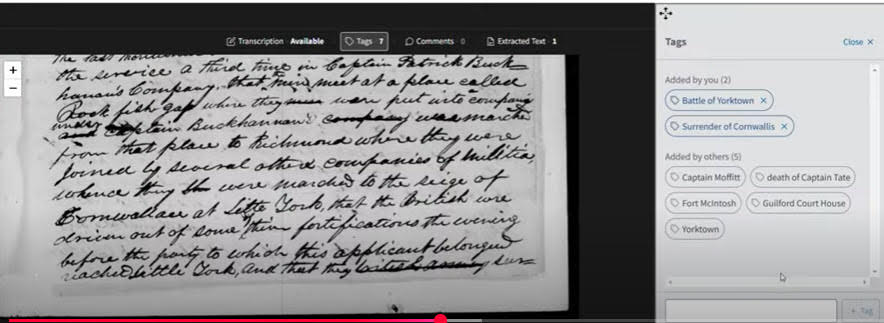 Transcription · Available
Tags · 7
Comments · 0
Extracted Text · 1
+
−
the last
the service a third time in Captain Patrick Buck-
hanan's Company. that men meet at a place called
Rock fish gap where they were put into company
under Captain Buckhannan company was marche
from that place to Richmond where they were
Joined by several other companies of Militia
whence they were marched to the seize of
Cornwallace at Little York, that the British were
driven out of some of their fortifications the evening
before the party to which this applicant belonged
reached Little York, and that they British army sur=
Tags
Close ×
Added by you (2)
Battle of Yorktown ×
Surrender of Cornwallis ×
Added by others (5)
Captain Moffitt
death of Captain Tate
Fort McIntosh
Guilford Court House
Yorktown
+ Tag